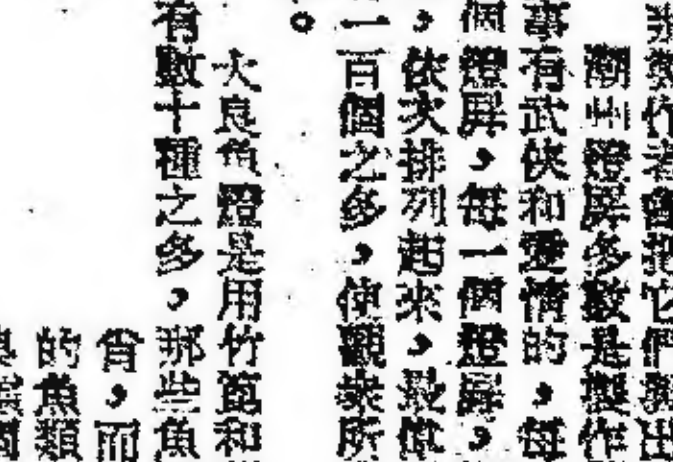 製作者會把它們製出
潮州燈屏多數是製作
事有武俠和愛情的，每
個燈屏，每一個燈屏，
，依次排列起來，最
一百個之多，使觀衆所
。
大良魚燈是用竹篾和
有數十種之多，那些魚
，而
的魚類